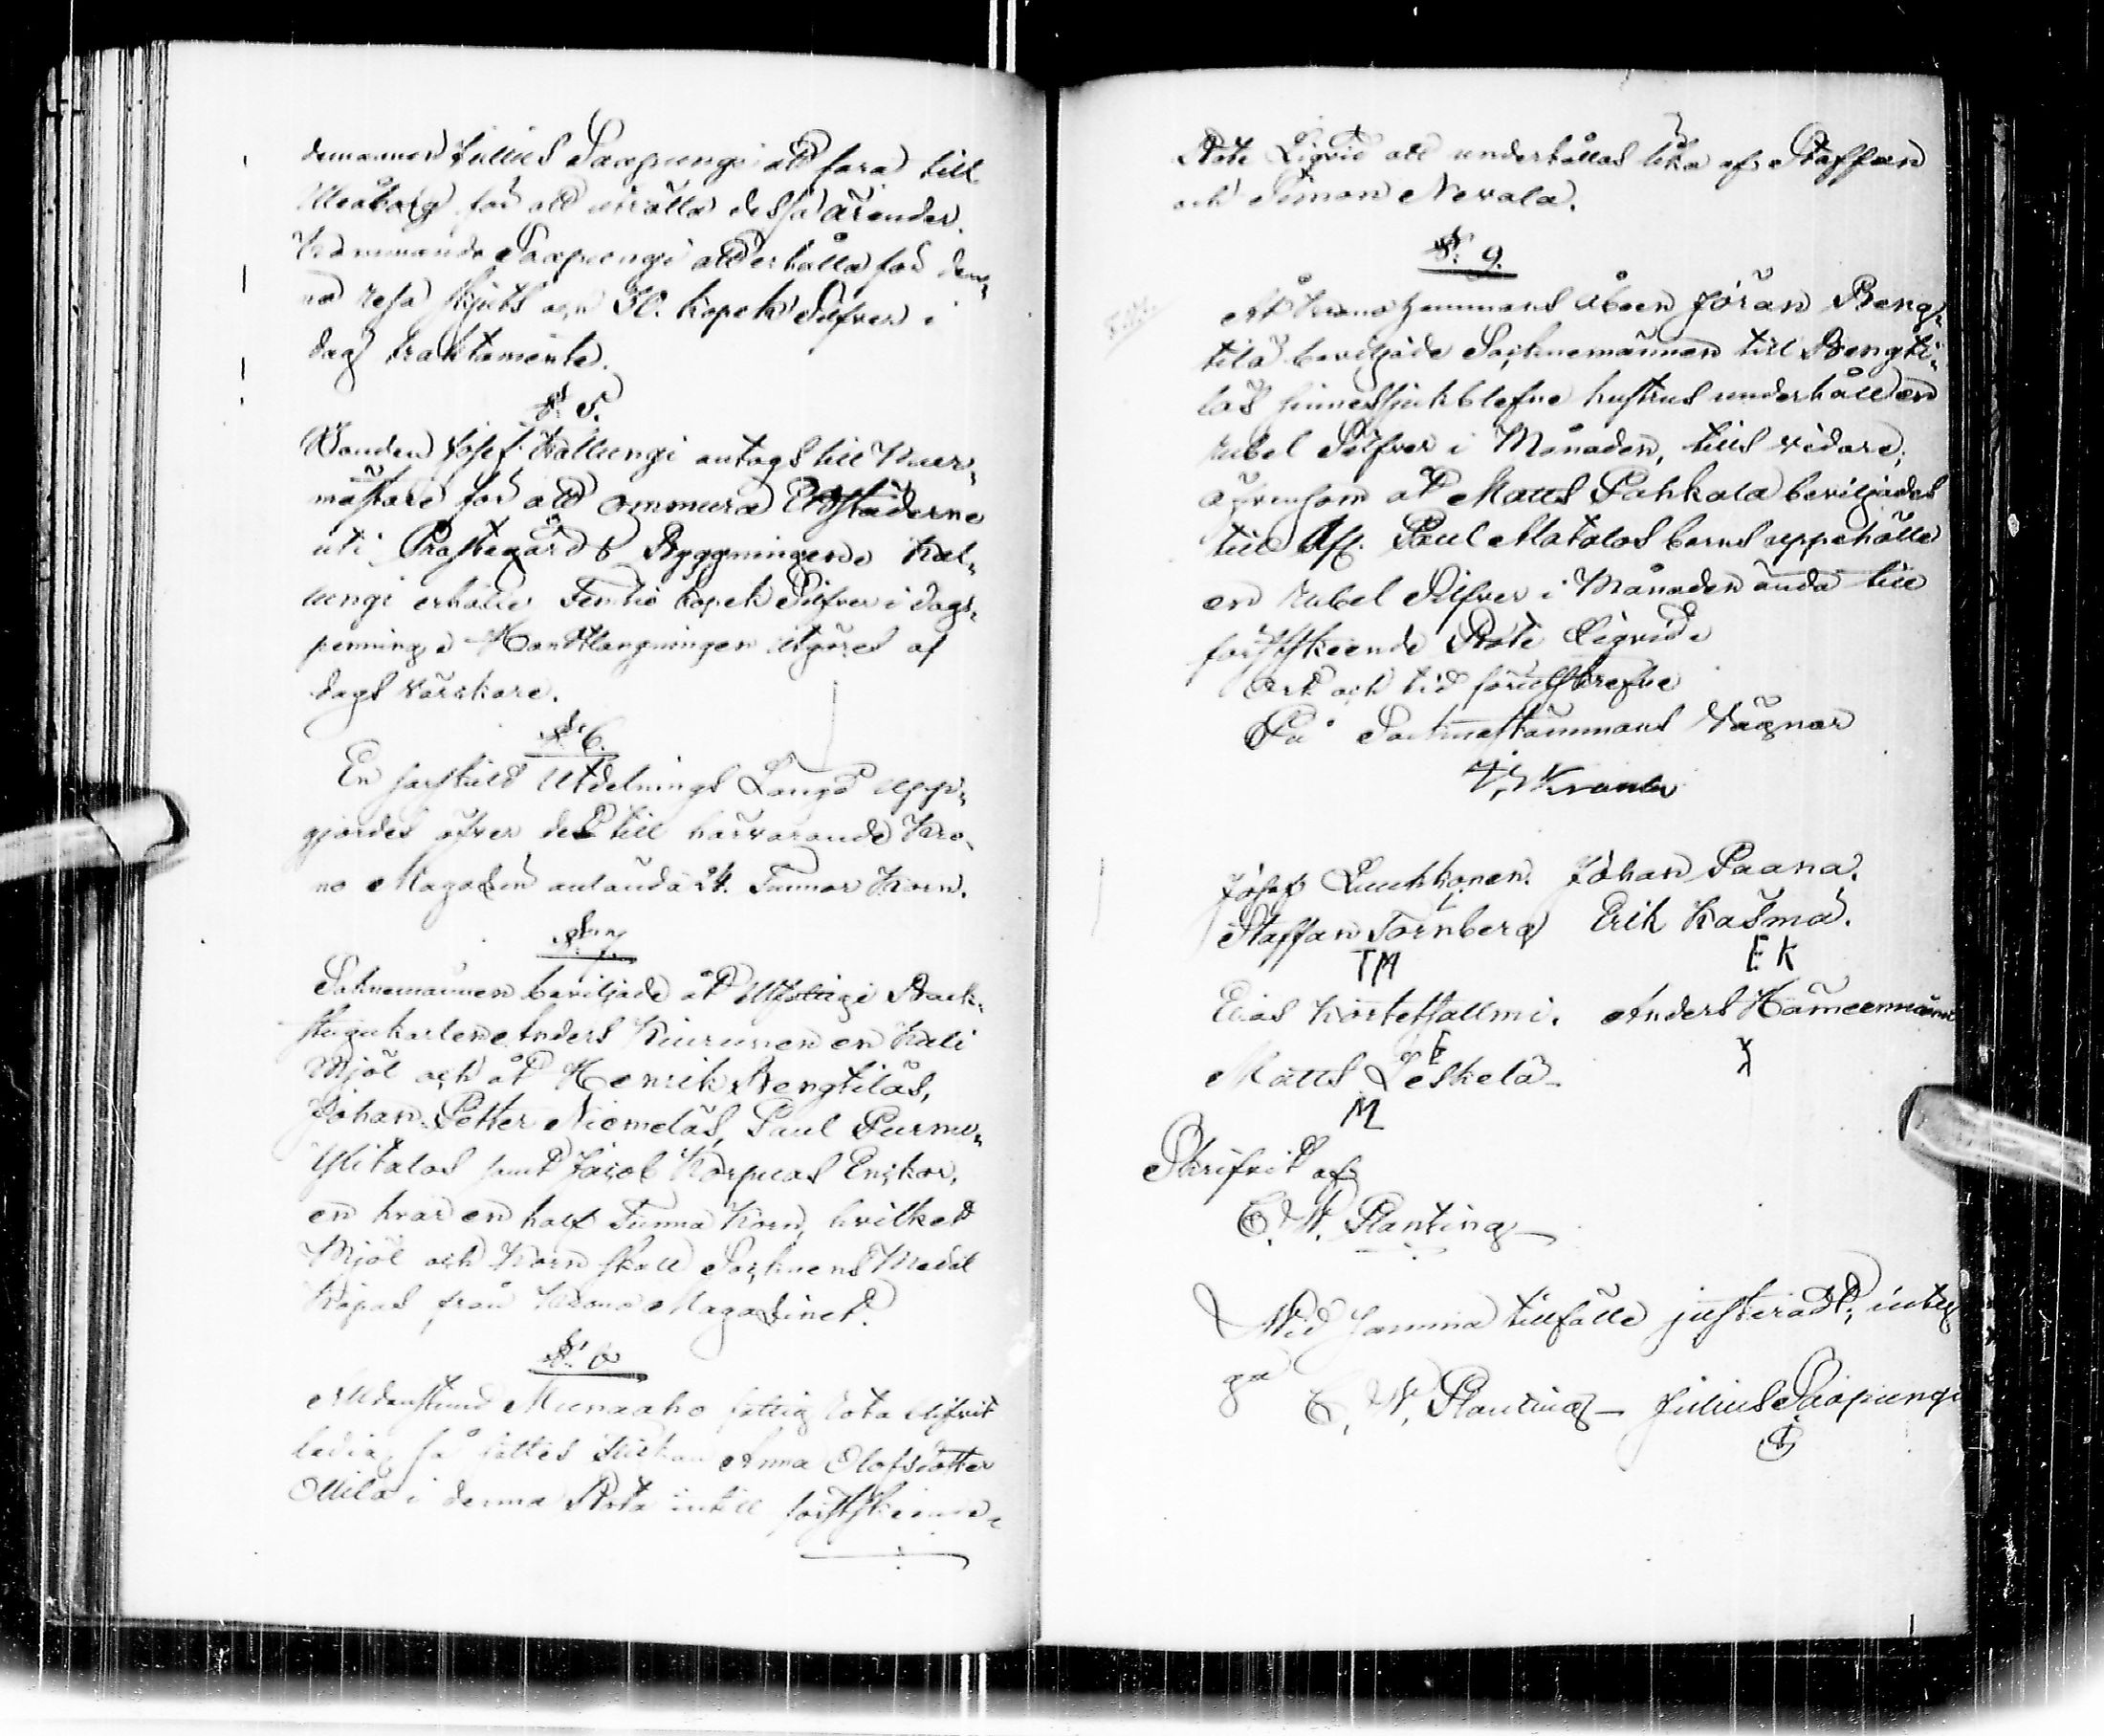 demannen Julius Saapungi att fara till
Uleåborg för att uträtta dessa ärender.
Saapungi att erhålla för den„
na resa skjuts och 30. kopek Silfver i
dag traktamente.
§. 5.
Bonden Josef Kallungi antogs till Muur„
mästare för att ommura Eldstäderne
uti Prästegårds Byggningen Kal„
lungi erhåller Femtio kopek Silfver i dags„
penning Handtlangningen utgöres af
dags värckare.
§. 6.
En särskild Utdelnings Längd upp„
gjordes öfver det till härvarande Kro„
no Magasin anlända 24. Tunnor Korn.
§. 7.
Soknemännen beviljade åt Utfattige Back„
stugukarlen Anders Kiurunen en Kali
Mjöl och åt Henrik Bengtiläs,
Johan Petter Niemeläs, Paul Purnu„
Ylitalos samt Jacob Korpuas Enkor,
en hvar en half Tunna Korn, hvilket
Mjöl och Korn skall Socknens Medel
köpas från Krono Magasinet.
§. 8
Alldenstund Munaaho fattig Rota blifvit
ledig, så sattes Flickan Anna Olofsdotter
Ollila i denna Rota intill förstskeende
Rote Liqvid att underhållas lika af Staffan
och Simon Nevala.
§. 9.
Åt Kronohemmans Åboen Jöran Beng„
tilä beviljade Socknemännen till Bengti„
läs sinnessjukblefne hustrus underhåll en
rubel Silfver i Månaden, tills vidare,
äfvensom åt Matts Pahkala beviljades
till Afl. Paul Matalas barns uppehälle
en rubel Silfver i Månaden ända till
förstskeende Rote Liqvid.
Ort och tid förutskrefne
På Socknestämmans Vägnar
Josef Luukkonen. Johan Paana.
Staffan Törnberg Erik Kaśma.
TM EK
Elias Kortetsallmi. Anders Hämeenmaa
E X
Matts Leskelä
M
Skrifvit af
C. W. Planting
Vid samma tillfälle justeradt, intyg
ga
C. W. Planting Julius Saapungi